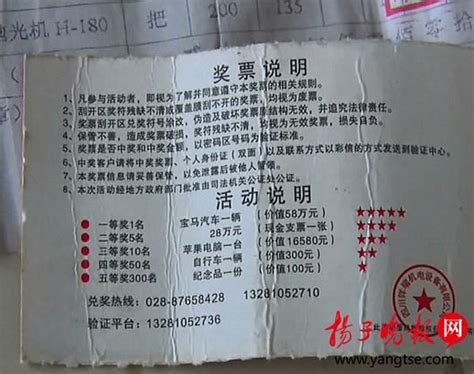 抛光机 H-180 把 200 135
奖票说明
1、凡参与活动者，即视为了解并同意遵守本奖票的相关规则。
2、刮开区奖符残缺不清或覆盖膜刮不开的奖票，均视为废票。
3、奖票刮开区兑奖符号涂改，伪造及破坏奖票质结构无效，并追究法律责任。
4、保管不善，造成奖票破损，奖符残缺不清，均视为无效奖票，损失自负。
5、奖票是否中奖和中奖金额，以密码区号码为验证标准。
6、中奖客户请将中奖奖票、个人身份证（双面）以及联系方式以彩信的方式发送到验证中心。
7、本奖票信息请妥善保管，以免泄露后被他人冒领。
8、本次活动经地方政府部门批准由司法机关公证处公证。
活动说明
一等奖1名 宝马汽车一辆 （价值58万元） ★★★★★
二等奖5名 28万元 （现金支票一张） ★★★★
三等奖10名 苹果电脑一台 （价值16580元） ★★★
四等奖50名 自行车一辆 （价值300元） ★★
五等奖300名 纪念品一份 （价值100元） ★
兑奖热线：028-87658428 13281052710
验证平台：13281052736
扬子晚报网
www.yangtse.com